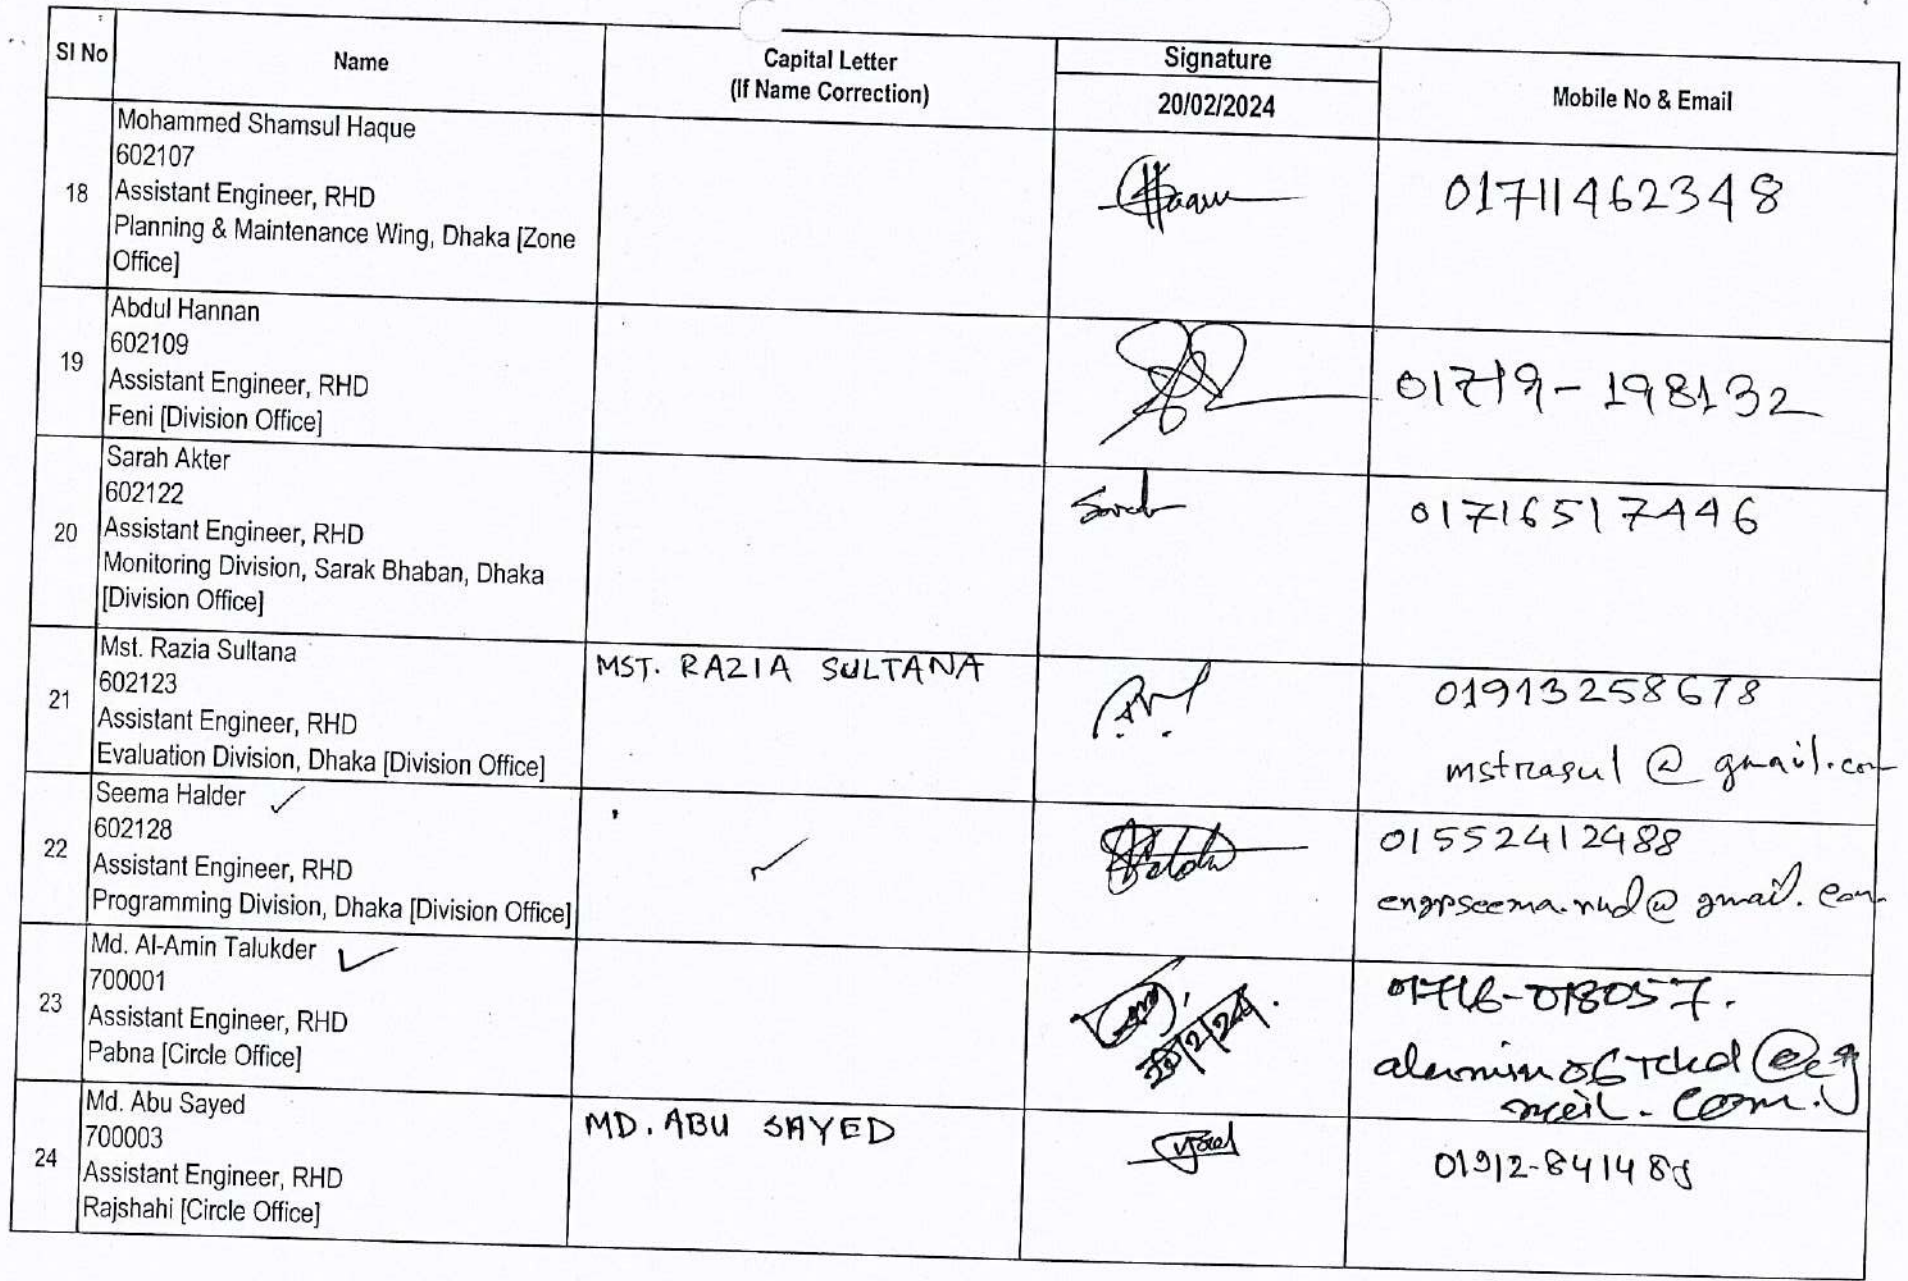 Sl No
Name
Capital Letter
(If Name Correction)
Signature
20/02/2024
Mobile No & Email
18
Mohammed Shamsul Haque
602107
Assistant Engineer, RHD
Planning & Maintenance Wing, Dhaka [Zone
Office]
01711462348
19
Abdul Hannan
602109
Assistant Engineer, RHD
Feni [Division Office]
01719-198132
20
Sarah Akter
602122
Assistant Engineer, RHD
Monitoring Division, Sarak Bhaban, Dhaka
[Division Office]
Sarah
01716517446
21
Mst. Razia Sultana
602123
Assistant Engineer, RHD
Evaluation Division, Dhaka [Division Office]
MST. RAZIA SULTANA
01913258678
mstrasul@gmail.com
22
Seema Halder
602128
Assistant Engineer, RHD
Programming Division, Dhaka [Division Office]
01552412488
@gmail.com
23
Md. Al-Amin Talukder
700001
Assistant Engineer, RHD
Pabna [Circle Office]
01716-018057.
24
Md. Abu Sayed
700003
Assistant Engineer, RHD
Rajshahi [Circle Office]
MD. ABU SAYED